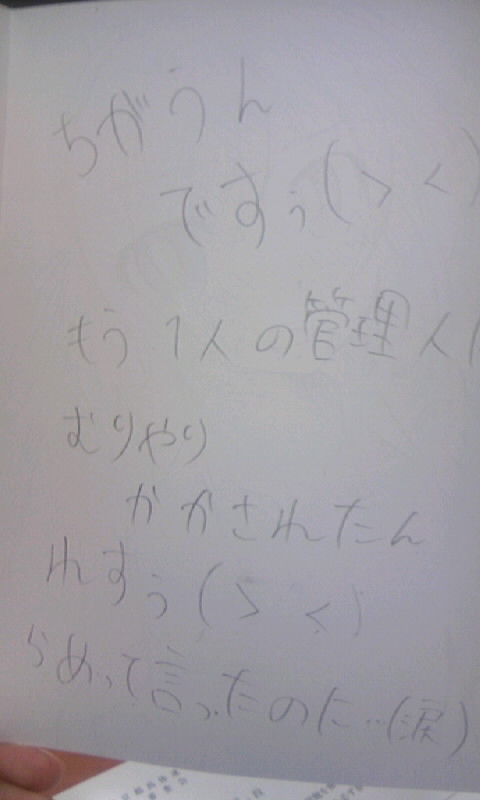 ちがうん
ですぅ(> <)
もう1人の管理人(
むりやり
かかされたん
れすぅ(> <)
らめって言ったのに…(涙)